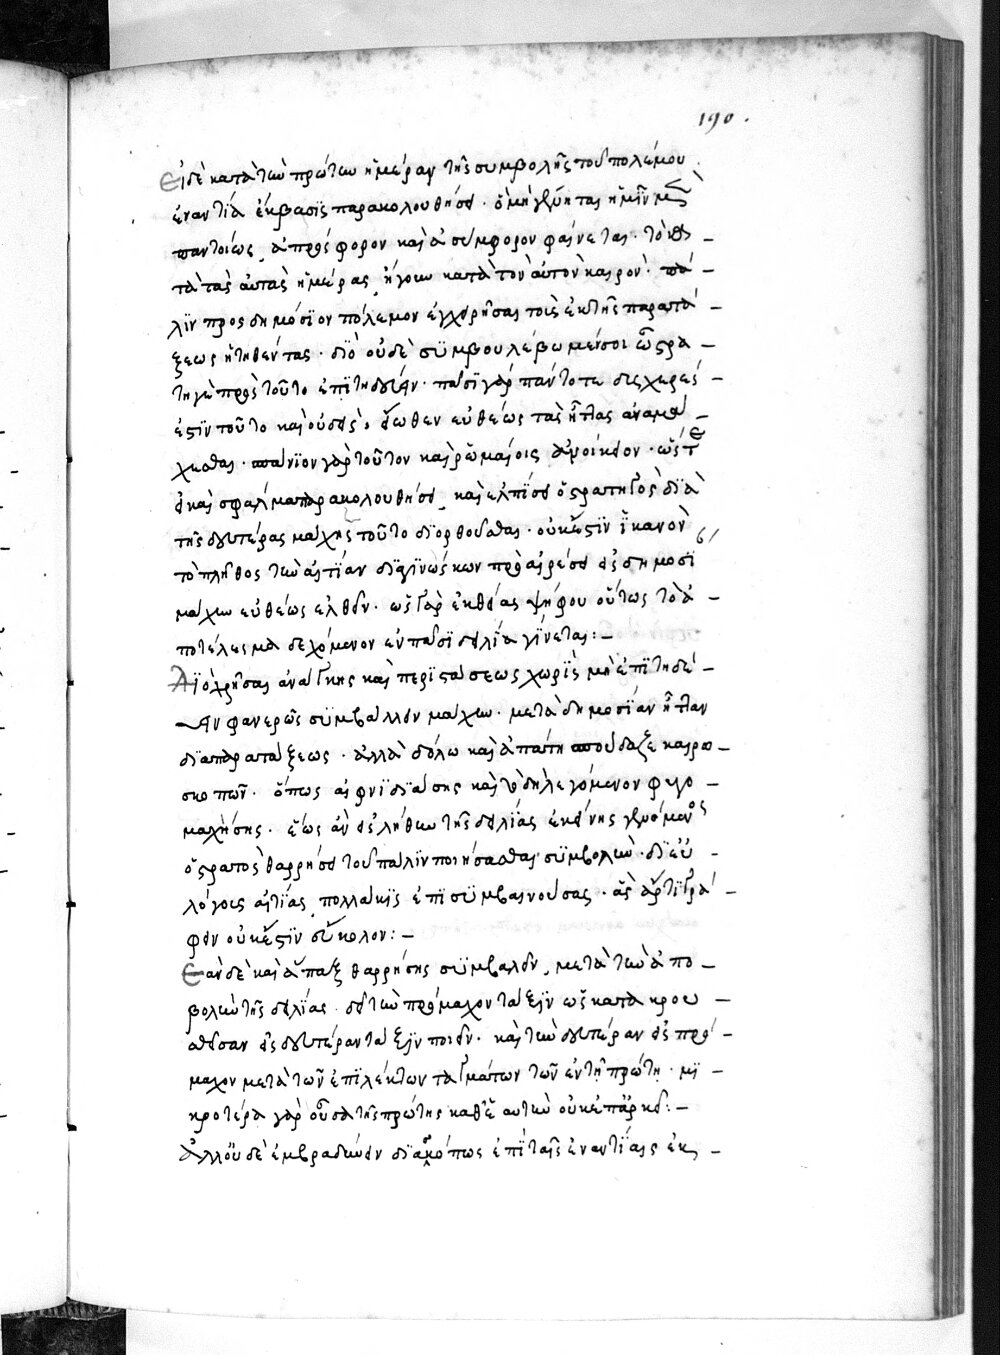 190.
Εἰ δὲ κατὰ τὴν πρώτην ἡμέραν τῆς συμβολῆς τοῦ πολέμου
ἐναντία ἔκβασϊς παρακολουθήσει· ὃ μὴ γένηται ἡμῖν
παντοίως ἀπρόσφορον καὶ ἀσύμφορον φαίνεται· τὸ
τὰ τὰς αὐτὰς ἡμέρας, ἤγουν κατὰ τὸν αὐτὸν καιρὸν· πά
λϊν προς δημόσϊον πόλεμον ἐγχειρῆσαι τοὺς ἐκ τῆς παρατά
ξεως ἡττηθέντας· δϊὸ οὐδὲ σϋμβουλεύω μέν σοι ὦ στρα
τηγὲ πρὸς τοῦτο ἐπϊτηδεύειν· πᾶσϊ γὰρ πάντοτε δυσχερές
ἐστϊν τοῦτο καὶ οὐδεὶς εἴωθεν εὐθέως τὰς ἥττας ἀναμά
χεσθαι· σπάνϊον γὰρ τοῦτον καὶ ῥωμαίοις ἀνοίκειον· ὥστε
εἰ καὶ σφάλμα παρακολουθήσει, καὶ ἐλπϊσει ὁ στρατηγὸς δϊὰ
τῆς δευτέρας μάχης τοῦτο δϊορθοῦσθαι· οὐκ ἔστϊν ϊκανὸν
τὸ πλῆθος τὴν αἰτίαν δϊαγϊνώσκων προαιρέσει εἰς δημοσϊ
μάχην εὐθέως ἐλθεῖν· ὡς γὰρ ἐκ θείας ψήφου οὕτως τὸ ἀ
ποτέλεσμα δεχόμενον ἐν πᾶσϊ δειλία γΐνεται:—
Δϊὸ χρῆσαι ἀνάγκης καὶ περϊστάσεως χωρὶς μὴ ἐπϊτηδεύ
ειν φανερῶς συμβάλλειν μάχην· μετὰ δημοσίαν ἥτταν
δϊὰ παρατάξεως· ἀλλὰ δόλω καὶ ἀπάτη σπούδαζε καιρο
σκοπῶν· ὅπως αἰφνϊδϊάσης καὶ τὸ δὴ λεγόμενον φυγο
μαχήσης· ἕως ἂν εἰς λήθην τῆς δειλίας ἐκείνης γενόμενος
ὁ στρατὸς θαρρήσει τοῦ πάλϊν ποιήσασθαι συμβολὴν· δϊ' εὐ
λόγους αἰτϊας πολλάκϊς ἐπϊσυμβαινούσας· ἃς ἄρτϊ γρά
φειν οὐκ ἔστϊν εὔκολον:—
Ἐὰν δὲ καὶ ἅπαξ θαρρήσης σϋμβαλεῖν, μετὰ τὴν ἀπο
βολὴν τῆς δειλίας· δεῖ τὴν πρόμαχον τάξϊν ὡς κατακρου
σθεῖσαν εἰς δευτέραν τάξϊν ποιεῖν· καὶ τὴν δευτέραν εἰς πρό
μαχον μετὰ τῶν ἐπϊλέκτων ταγμάτων τῶν ἐν τῆ πρώτη· μϊ
κροτέρα γὰρ οὖσα τῆς πρώτης καθ' ἑαυτὴν οὐκ ἐπαρκεῖ:—
Ἀλλ' οὐ δὲ ἐμβραδύνειν δϊακόπως ἐπϊ ταῖς ἐναντΐαις ἐκ